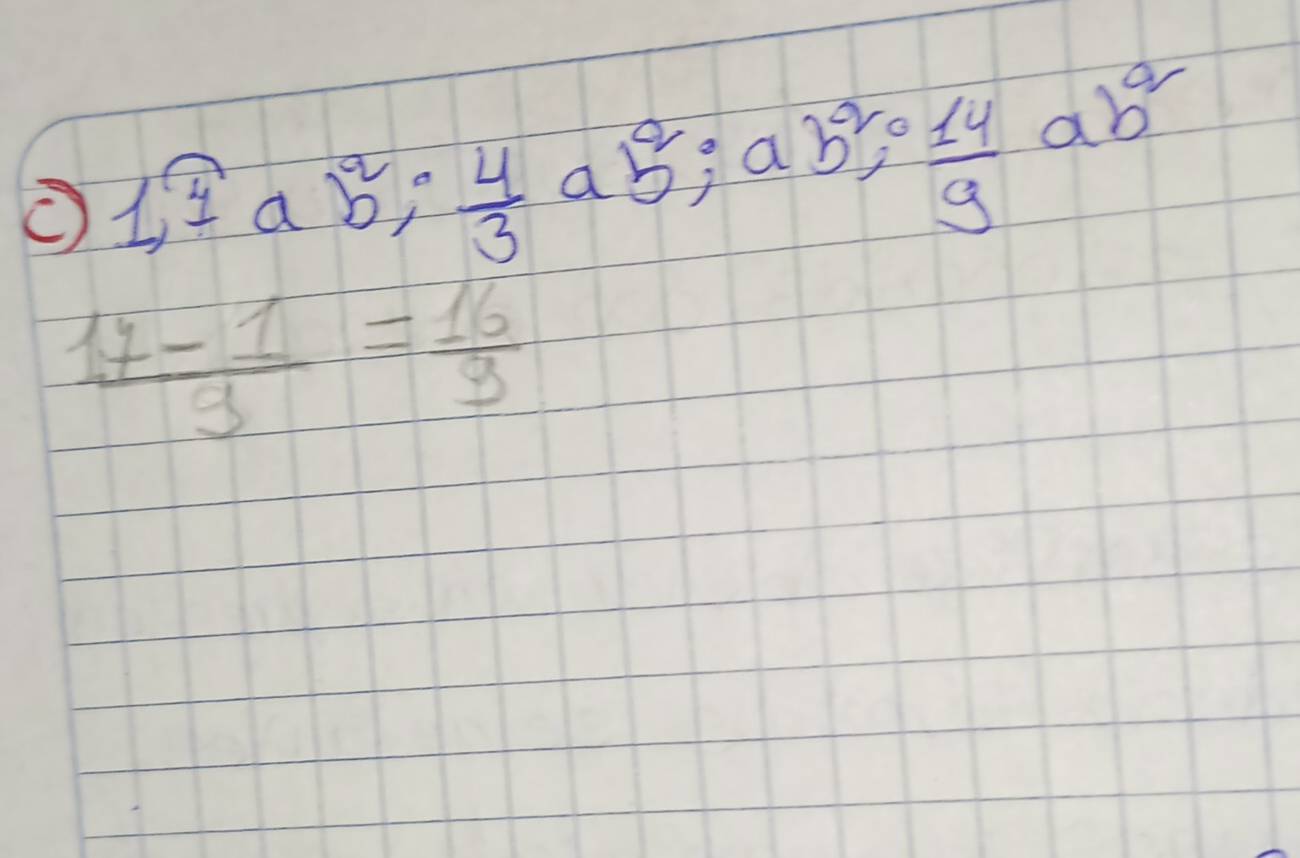 c) 1,7͡ ab²; 4/3 ab²; ab²; 14/9 ab²
17-1/9 = 16/9